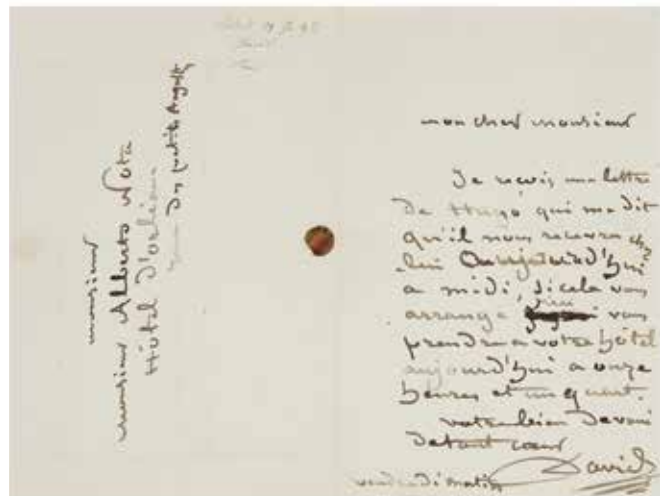 monsieur
Monsieur Alberto Nota
Hôtel D'orléans
Des petits Augustins
mon cher monsieur
Je reçois une lettre
De Hugo qui me dit
qu'il nous recevra chez
lui Aujourd'hui
a midi, si cela vous
arrange j'irai vous
prendre a votre hôtel
aujourd'hui a onze
heures et un quart.
votre bien Devoué
De tout coeur
David
vendredi matin